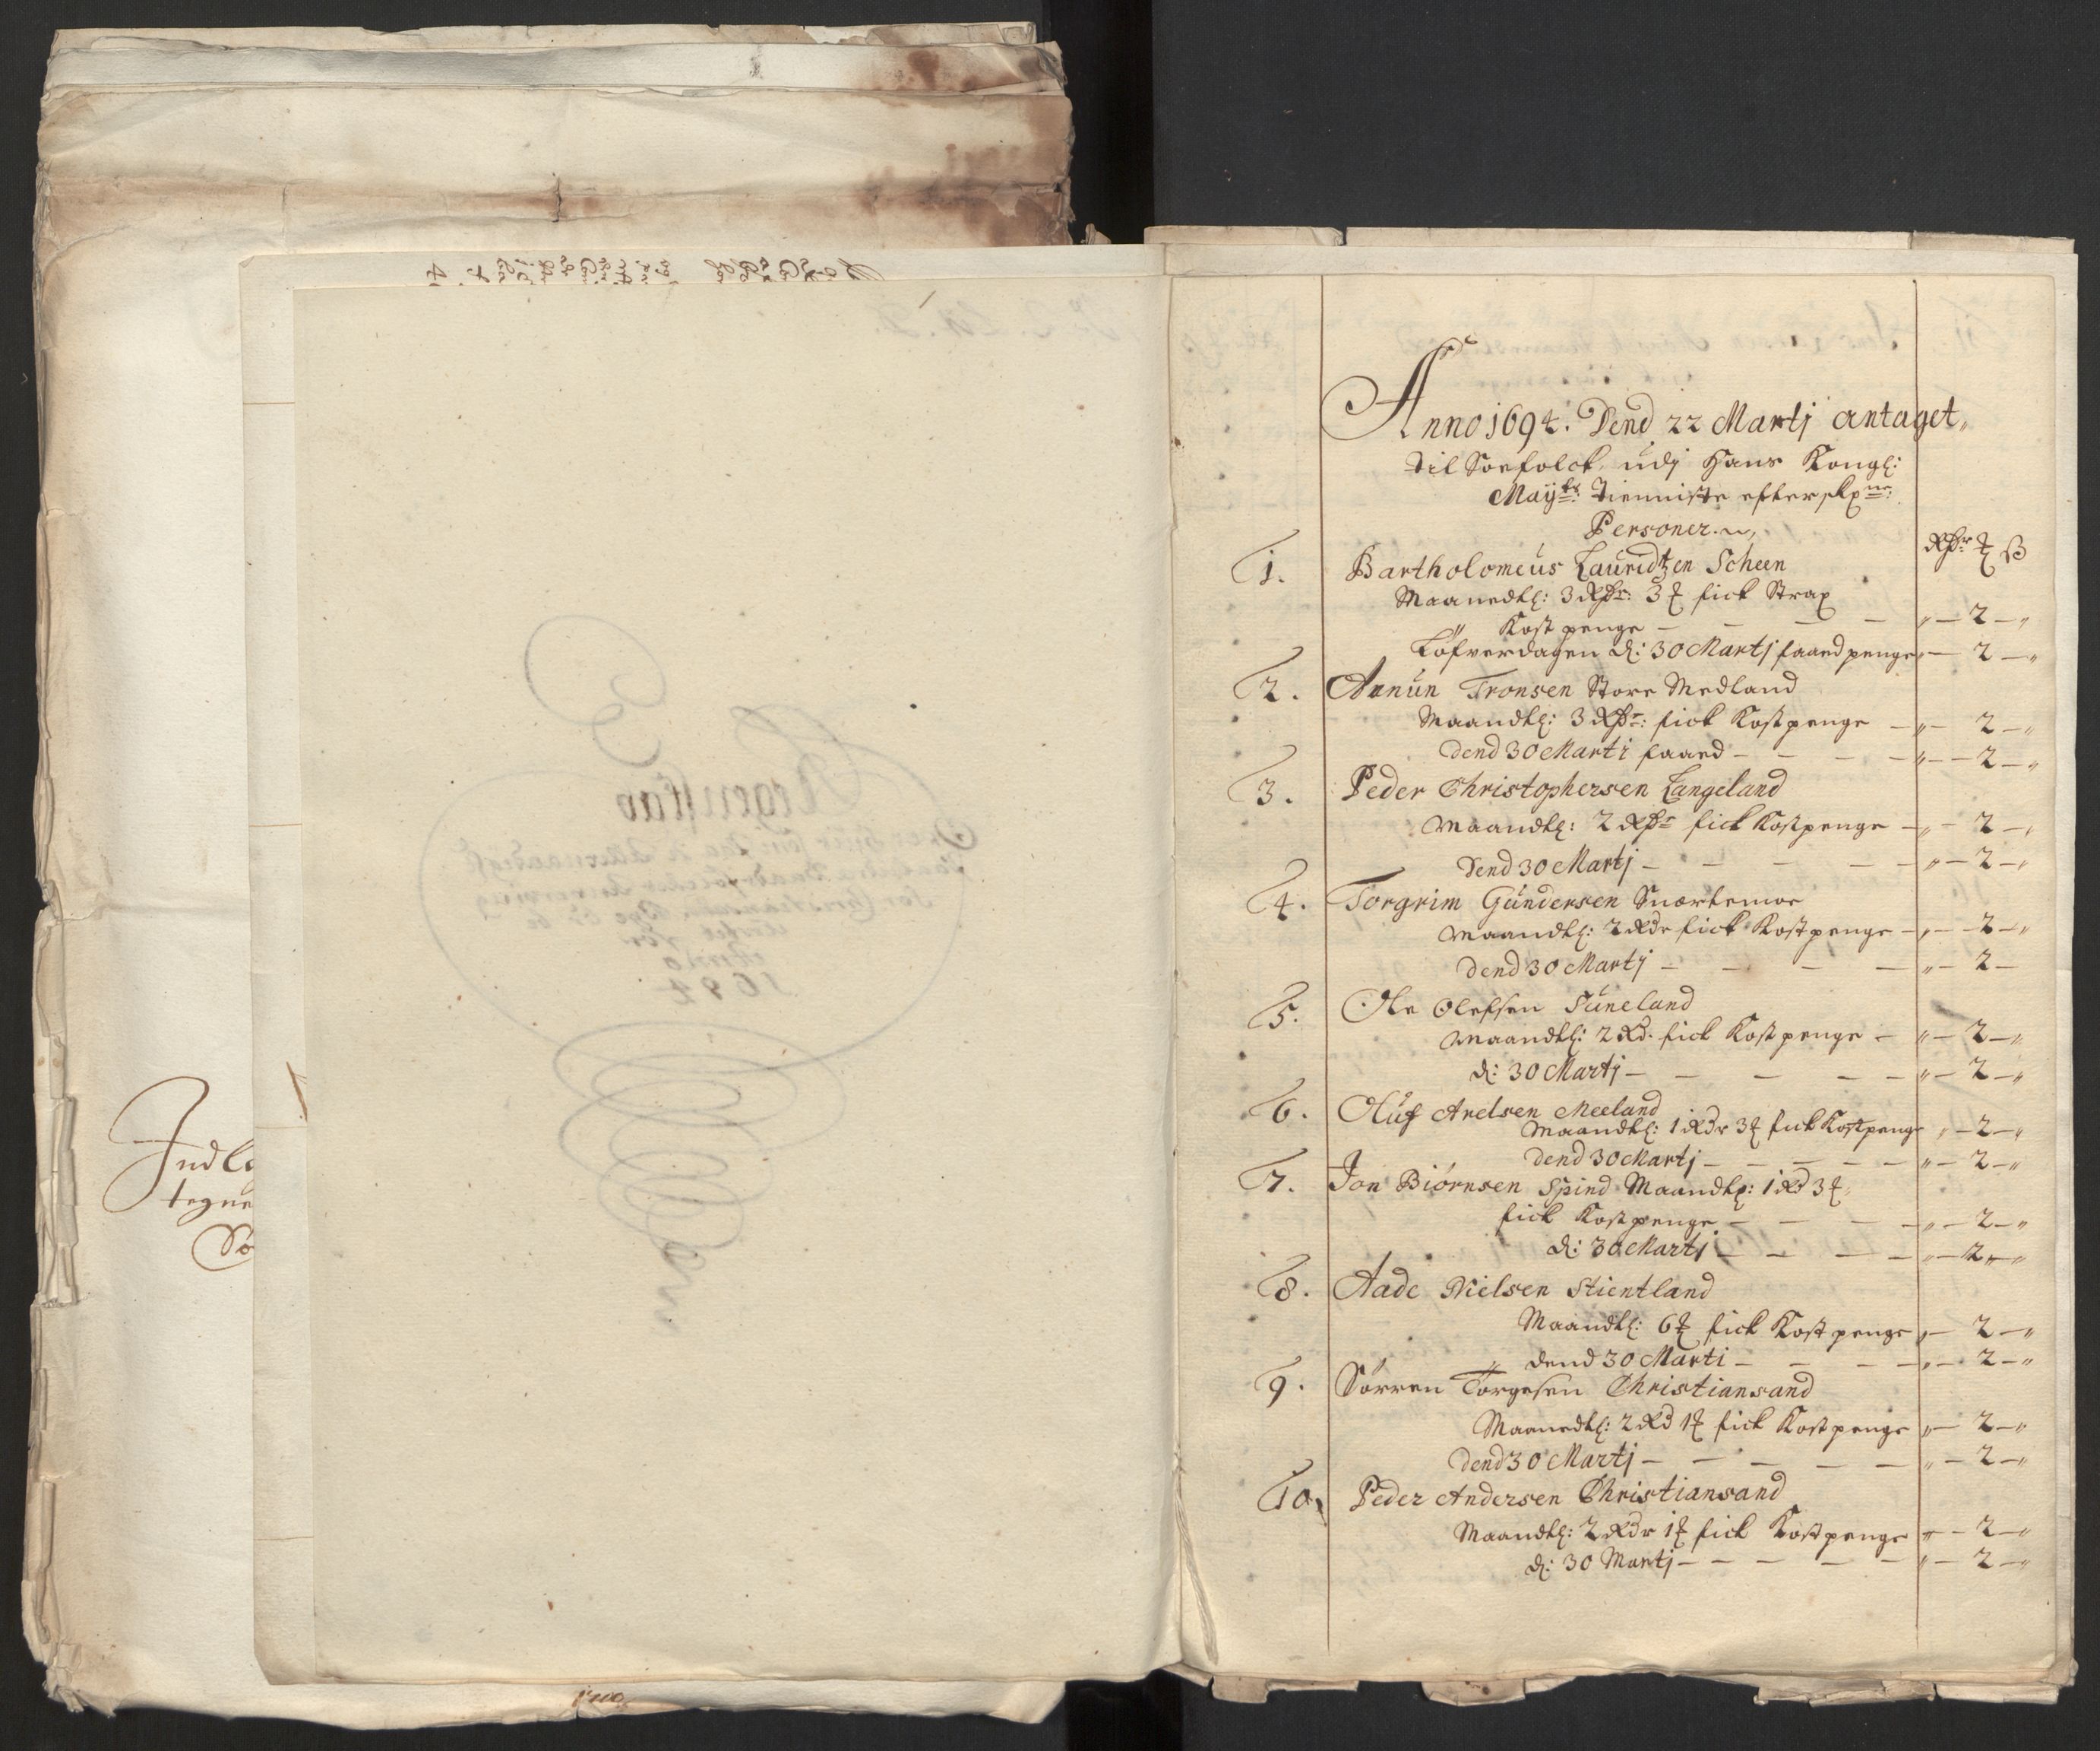 Indlæ
tegne
Anno 1694. Dend 22 Martj antaget
til Soefolck udj Hans Kongl:
Maÿts: Tienniste efterskrne:
Personer.
Rdr ß
1. Bartholomeus Lauridtzen Scheen
Maanedtl: 3 Rdr: 3 fick Strax
Kost penge — — — — „ — 2 — „
Løfverdagen d: 30 Martj faaed penge „ — 2 — „
2. Annun Tronsen Store Medland
Maandtl: 3 Rdr: fick Kostpenge — „ — 2 — „
dend 30 Marti faaed — — — — „ — 2 — „
3. Peder Christophersen Langeland
Maandtl: 2 Rdr fick Kostpenge — „ — 2 — „
dend 30 Martj — — — — — „ — 2 — „
4. Torgrim Gundersen Snartemoe
Maandtl: 2 Rdr fick Kostpenge — „ — 2 — „
dend 30 Martj — — — — „ — 2 —
5. Ole Olefsen Tuneland
Maandtl: 2 Rd. fick Kostpenge — „ — 2 — „
d: 30 Martj — — — — — „ — 2 — „
6. Oluf Arelsen Meeland
Maandtl: 1 Rdr 3 fick Kostpenge „ — 2 — „
dend 30 Martj — — — — — „ — 2 — „
7. Jon Biørnsen Spind Maandtl: 1 Rd 3
fick Kostpenge — — — — „ — 2 — „
d: 30 Martj — — — — „ — 2 — „
8. Aade Nielsen Stientland
Maandtl: 6 fick Kost penge „ — 2 — „
„ dend 30 Marti — — — — „ — 2 — „
9. Sørren Torgesen Christiansand
Maanedtl: 2 Rd 1 fick Kostpenge „ — 2 — „
dend 30 Martj — — — — — „ — 2 — „
10. Peder Andersen Christiansand
Maandtl: 2 Rdr 1 fick Kostpenge „ — 2 — „
d: 30 Martj — — — — — „ — 2 — „